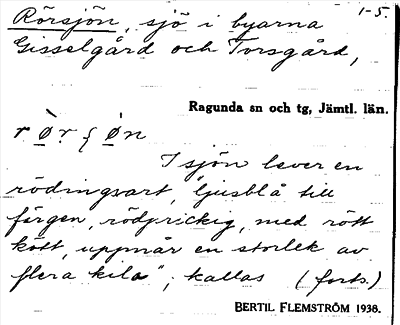 Rörsjön, sjö i byarna 1-5.
Gisselgård och Torsgård,
Ragunda sn och tg, Jämtl. län.
I sjön lever en
rödingsart, "ljusblå till
färgen, rödprickig, med rött
kött, uppnår en storlek av
flera kilo"; kallas (forts.)
BERTIL FLEMSTRÖM 1938.